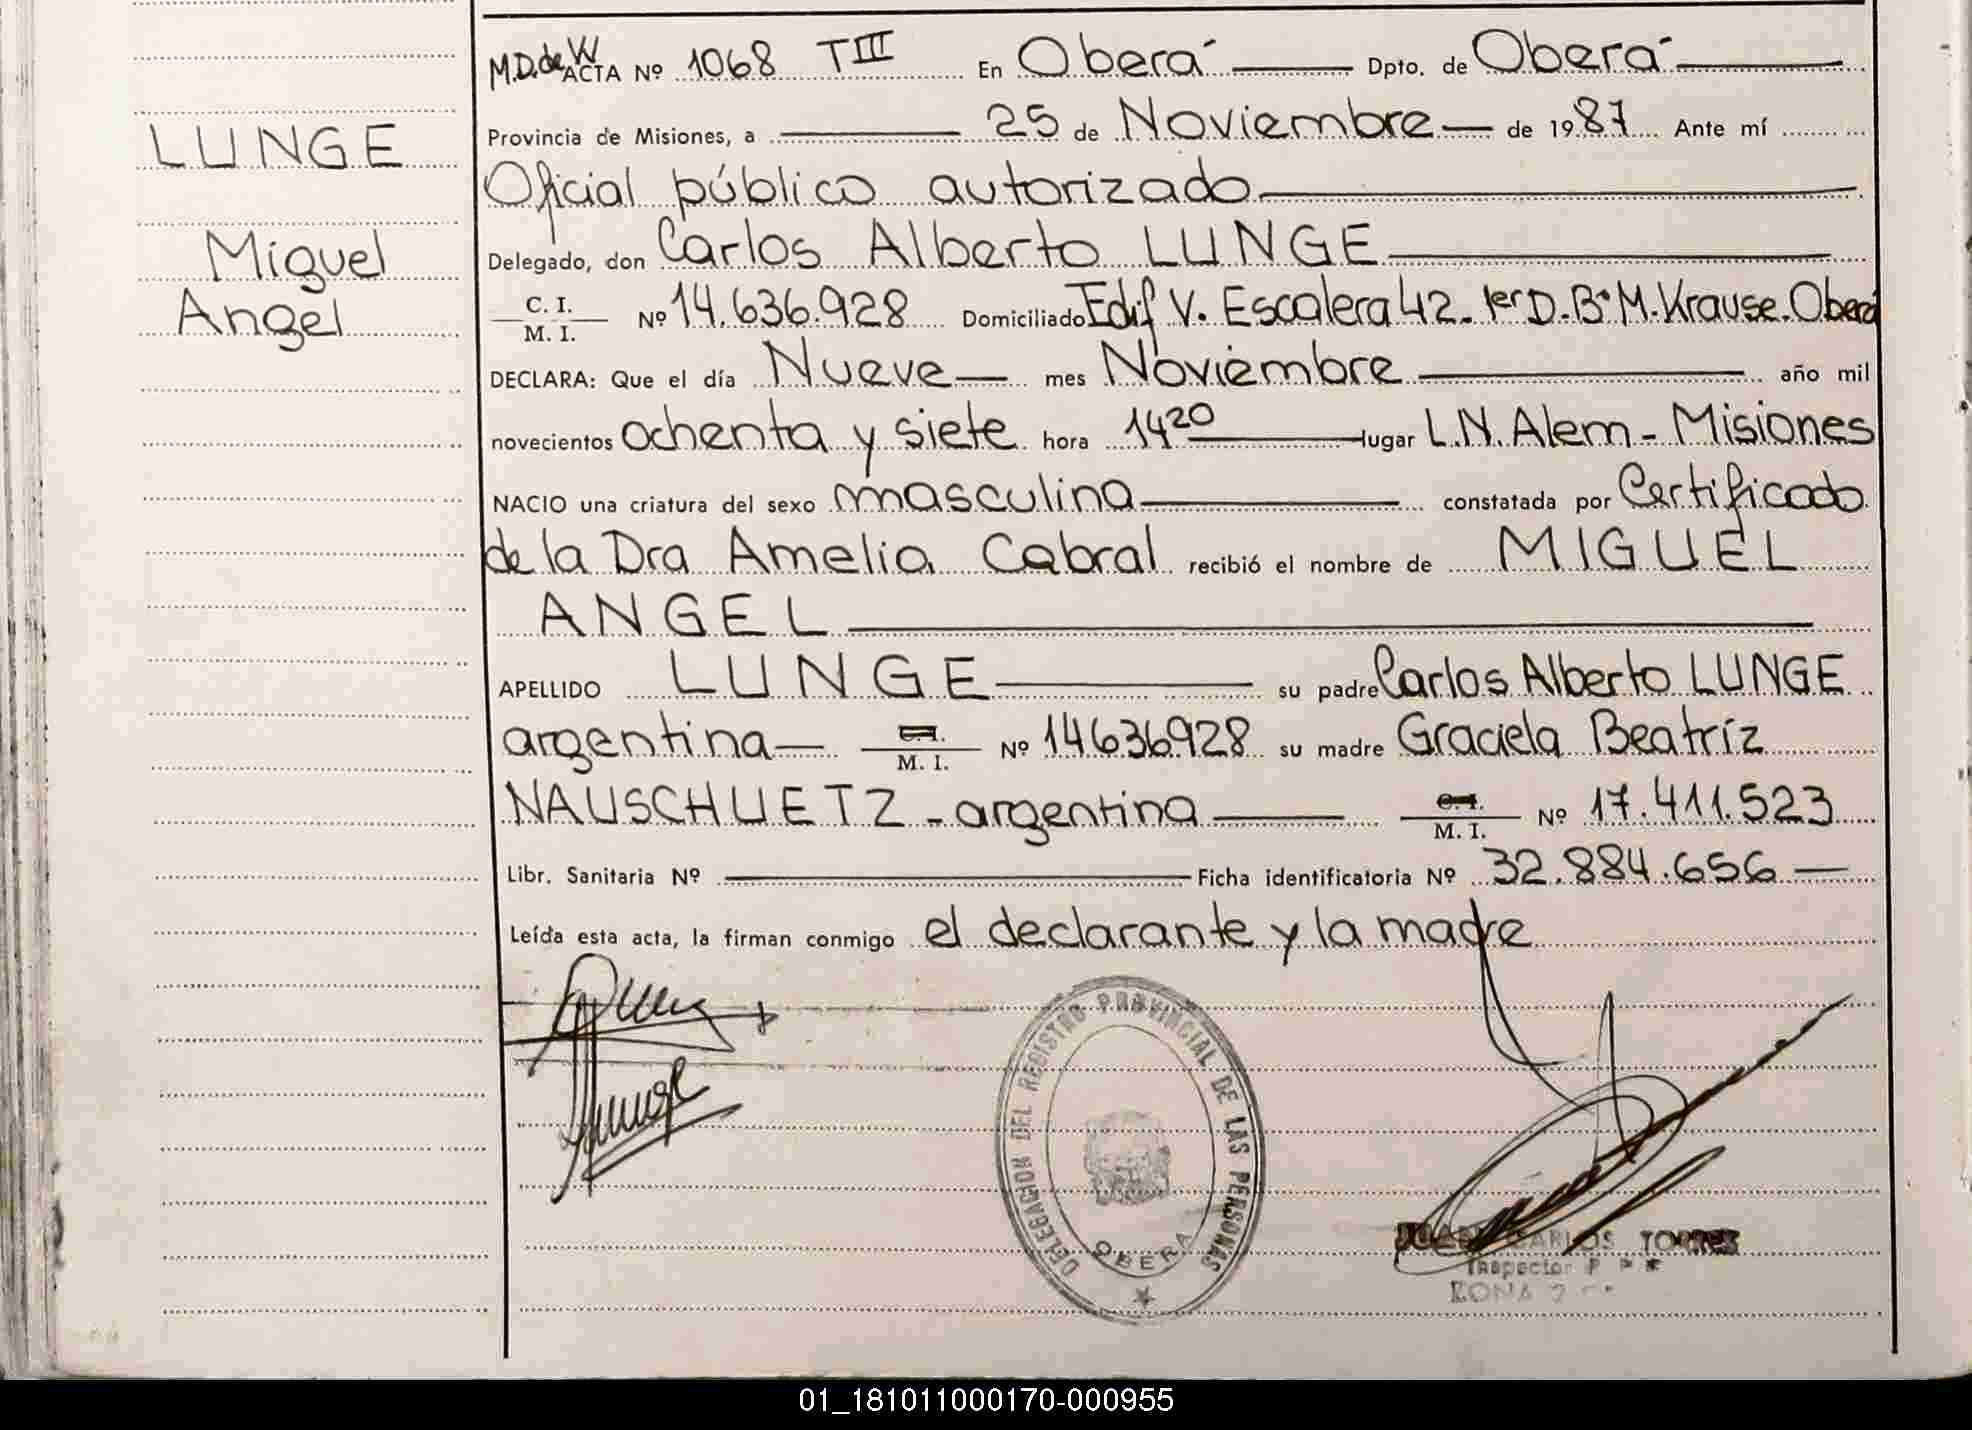 LUNGE
Miguel
Angel
M.D.de W
ACTA Nº 1068 TIII En Oberá Dpto. de Oberá
Provincia de Misiones, a 25 de Noviembre de 1987 Ante mí
Oficial público autorizado
Delegado, don Carlos Alberto LUNGE
C. I.
M. I. Nº 14.636.928 Domiciliado Edif V. Escalera 42. 1er D. Bº M. Krause. Oberá
DECLARA: Que el día Nueve mes Noviembre año mil
novecientos ochenta y siete hora 14 20 lugar L.N. Alem - Misiones
NACIO una criatura del sexo masculina constatada por Certificado
de la Dra Amelia Cabral recibió el nombre de MIGUEL
ANGEL
APELLIDO LUNGE su padre Carlos Alberto LUNGE
argentina C. I. M. I. Nº 14636928 su madre Graciela Beatríz
NAUSCHUETZ - argentina C. I. M. I. Nº 17.411.523
Libr. Sanitaria Nº Ficha identificatoria Nº 32.884.656
Leída esta acta, la firman conmigo el declarante y la madre
DELEGACION DEL REGISTRO PROVINCIAL DE LAS PERSONAS
OBERA
CARLOS TORRES
Inspector
ZONA
01_181011000170-000955